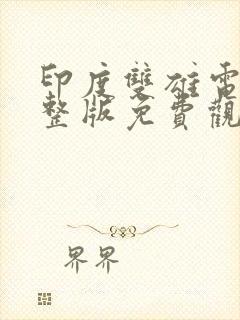 印度雙雄電
整版免費觀
界界